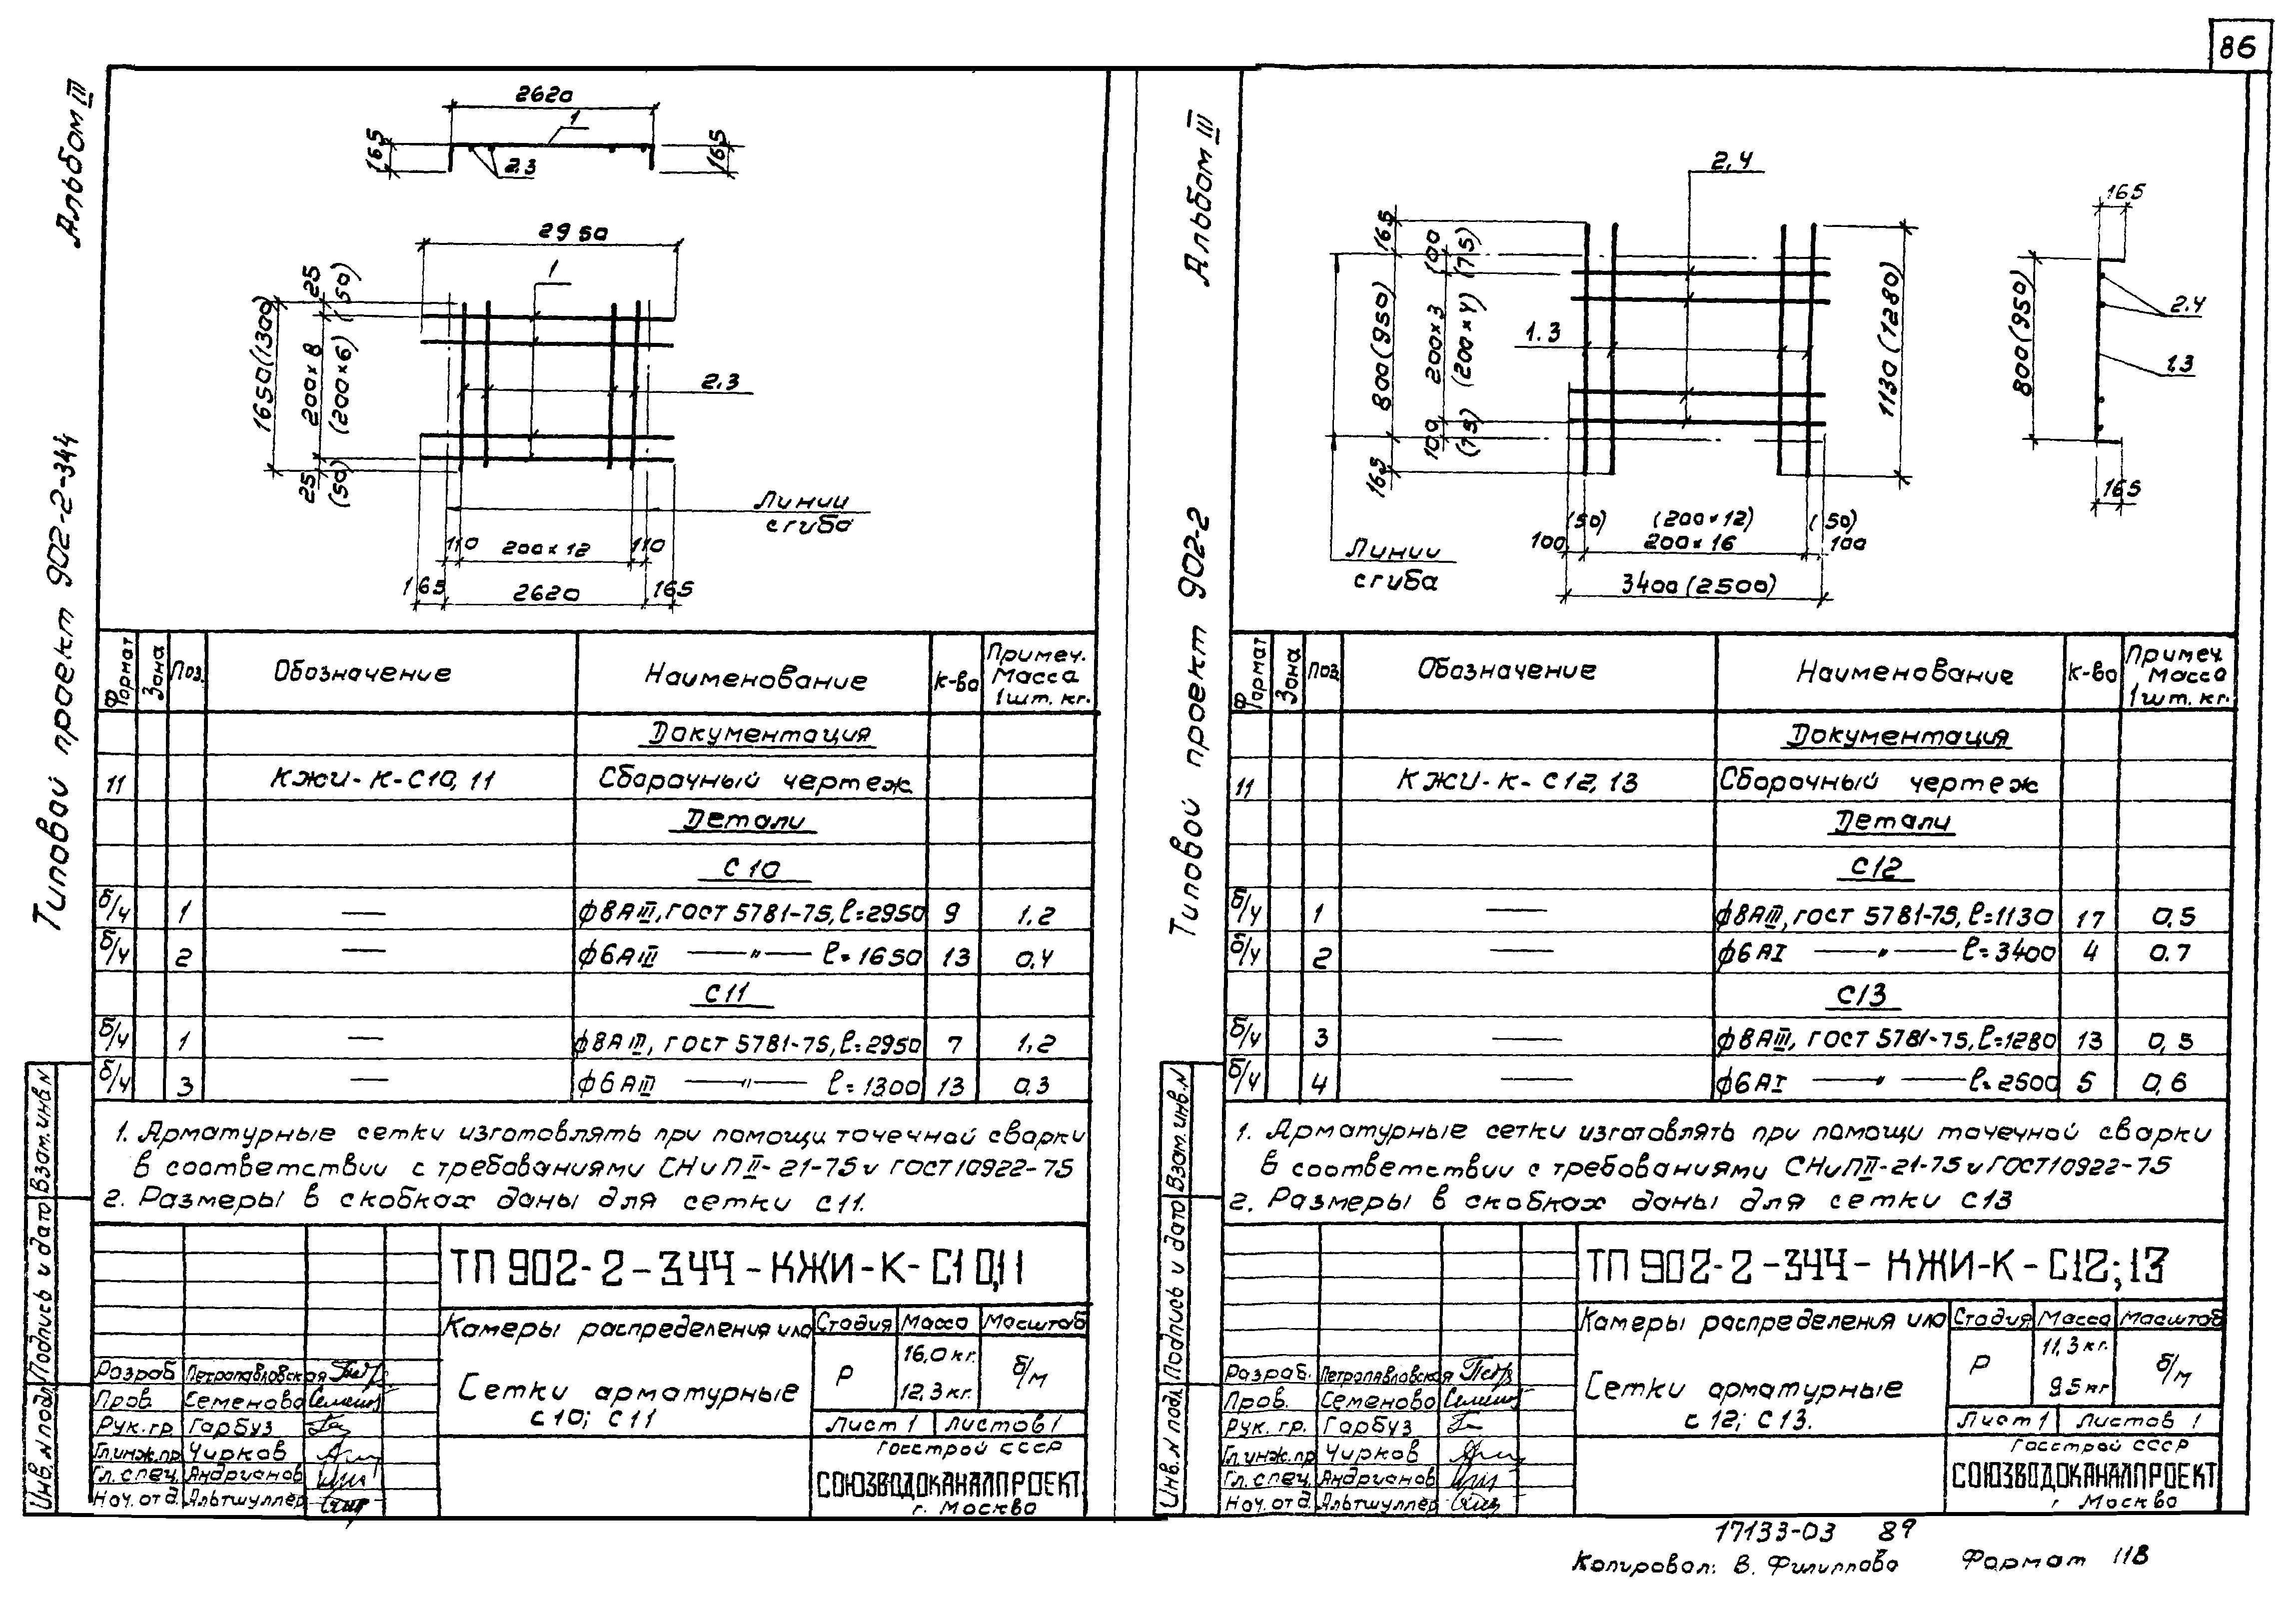 86
Альбом III
Типовой проект 902-2-344
2620
1
165
165
2.3
2950
1
25
(50)
1650(1300)
200×8
(200×6)
2.3
25
(50)
Линии
сгиба
110
200×12
110
165
2620
165
Формат
Зона
Поз.
Обозначение
Наименование
К-во
Примеч.
Масса
1шт. кг.
Документация
11 КЖИ-К-С10,11 Сборочный чертеж
Детали
С10
б/ч 1 — ф8АIII, ГОСТ 5781-75, ℓ=2950 9 1,2
б/ч 2 — ф6АIII —"— ℓ=1650 13 0,4
С11
б/ч 1 — ф8АIII, ГОСТ 5781-75, ℓ=2950 7 1,2
б/ч 3 — ф6АIII —"— ℓ=1300 13 0,3
1. Арматурные сетки изготовлять при помощи точечной сварки
в соответствии с требованиями СНиПII-21-75 и ГОСТ10922-75
2. Размеры в скобках даны для сетки С11.
ТП 902-2-344-КЖИ-К-С10,11
Камеры распределения ила
Стадия Масса Масштаб
Р
16,0 кг.
12,3 кг.
б/м
Сетки арматурные
С10; С11
Лист 1 Листов 1
Госстрой СССР
СОЮЗВОДОКАНАЛПРОЕКТ
г. Москва
Разраб. Петропавловская
Пров. Семенова
Рук. гр Гарбуз
Гл.инж.пр Чирков
Гл. спец. Андрианов
Нач. отд. Альтшуллер
Взам. инв. N
Подпись и дата
Инв. N подл.
Альбом III
Типовой проект 902-2
2.4
165
100
(75)
800(950)
200×3
(200×4)
1.3
1130(1280)
100
(75)
165
(50)
(200×12)
(50)
100
200×16
100
3400(2500)
Линии
сгиба
165
800(950)
2.4
1.3
165
Формат
Зона
Поз.
Обозначение
Наименование
К-во
Примеч.
Масса
1шт. кг.
Документация
11 КЖИ-К-С12,13 Сборочный чертеж
Детали
С12
б/ч 1 — ф8АIII, ГОСТ 5781-75, ℓ=1130 17 0,5
б/ч 2 — ф6АI —"— ℓ=3400 4 0.7
С13
б/ч 3 — ф8АIII, ГОСТ 5781-75, ℓ=1280 13 0,5
б/ч 4 — ф6АI —"— ℓ=2500 5 0,6
1. Арматурные сетки изготовлять при помощи точечной сварки
в соответствии с требованиями СНиПII-21-75 и ГОСТ10922-75
2. Размеры в скобках даны для сетки С13
ТП 902-2-344-КЖИ-К-С12;13
Камеры распределения ила
Стадия Масса Масштаб
Р
11,3 кг.
9.5 кг
б/м
Сетки арматурные
С12; С13.
Лист 1 Листов 1
Госстрой СССР
СОЮЗВОДОКАНАЛПРОЕКТ
г Москва
Разраб. Петропавловская
Пров. Семенова
Рук. гр. Гарбуз
Гл.инж.пр Чирков
Гл. спец. Андрианов
Нач. отд. Альтшуллер
Взам. инв. N
Подпись и дата
Инв. N подл.
17133-03 89
Копировал: В. Филиппова Формат 11В